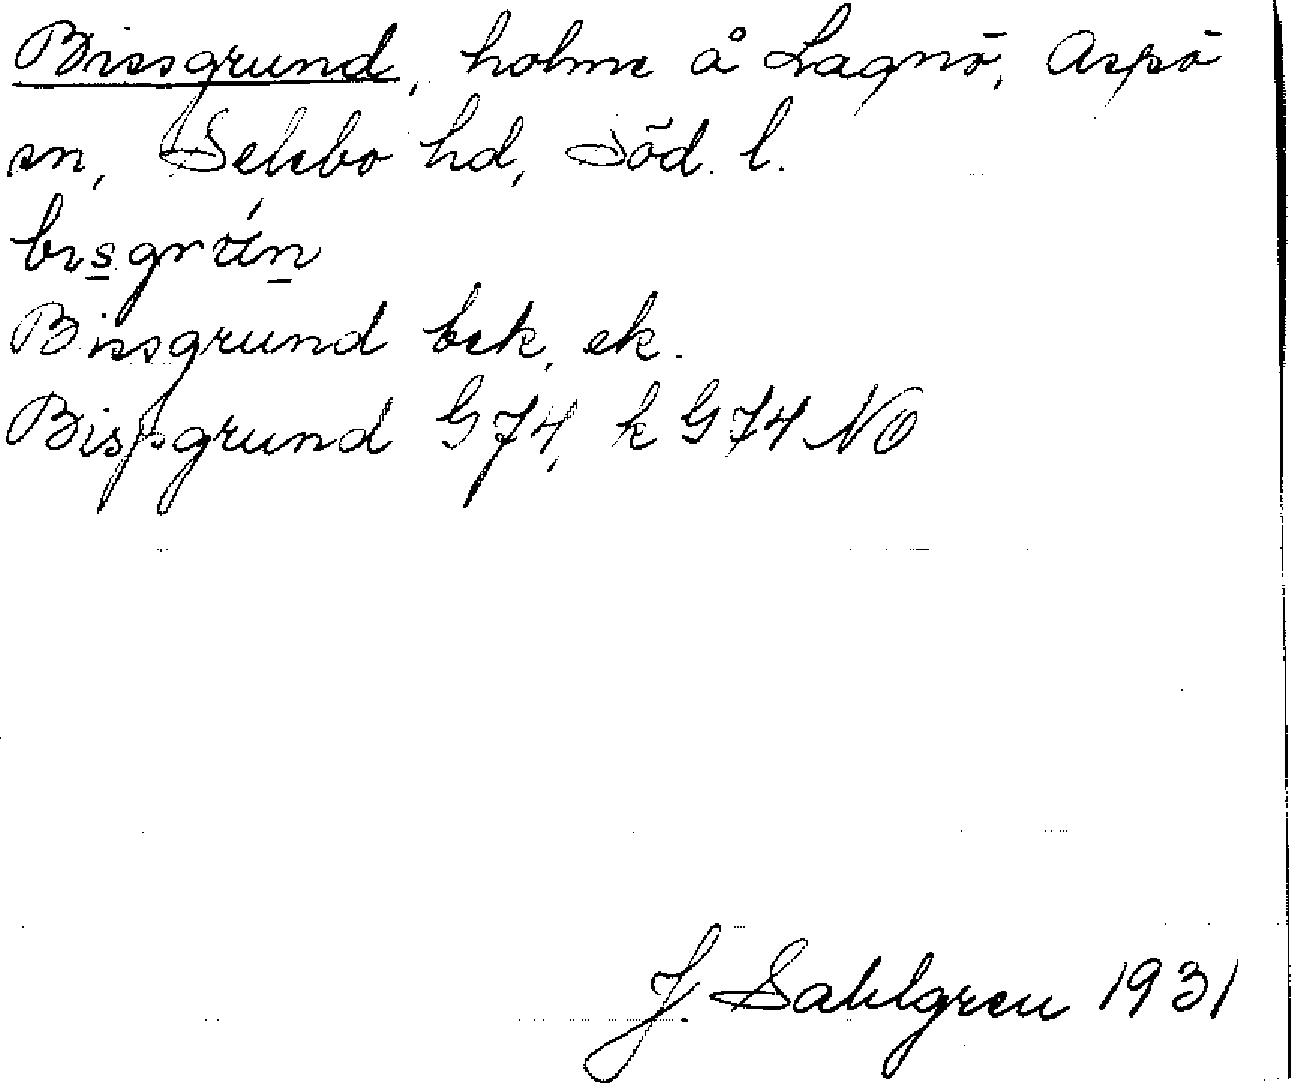 Bissgrund, holme å Lagnö, Aspö
sn, Selebo hd, Söd. l.
Bissgrund bek, ek.
Bispgrund G74, k G74 NO
J. Sahlgren 1931